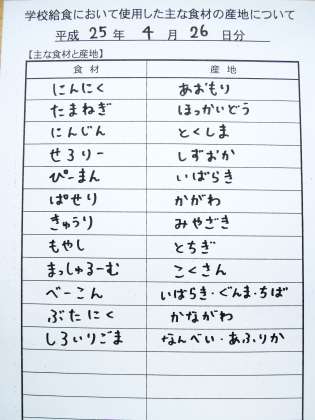 学校給食において使用した主な食材の産地について
平成 25 年 4 月 26 日分
【主な食材と産地】
食材 産地
にんにく あおもり
たまねぎ ほっかいどう
にんじん とくしま
せろりー しずおか
ぴーまん いばらき
ぱせり かがわ
きゅうり みやざき
もやし とちぎ
まっしゅるーむ こくさん
べーこん いばらき・ぐんま・ちば
ぶたにく かながわ
しろいりごま なんべい・あふりか